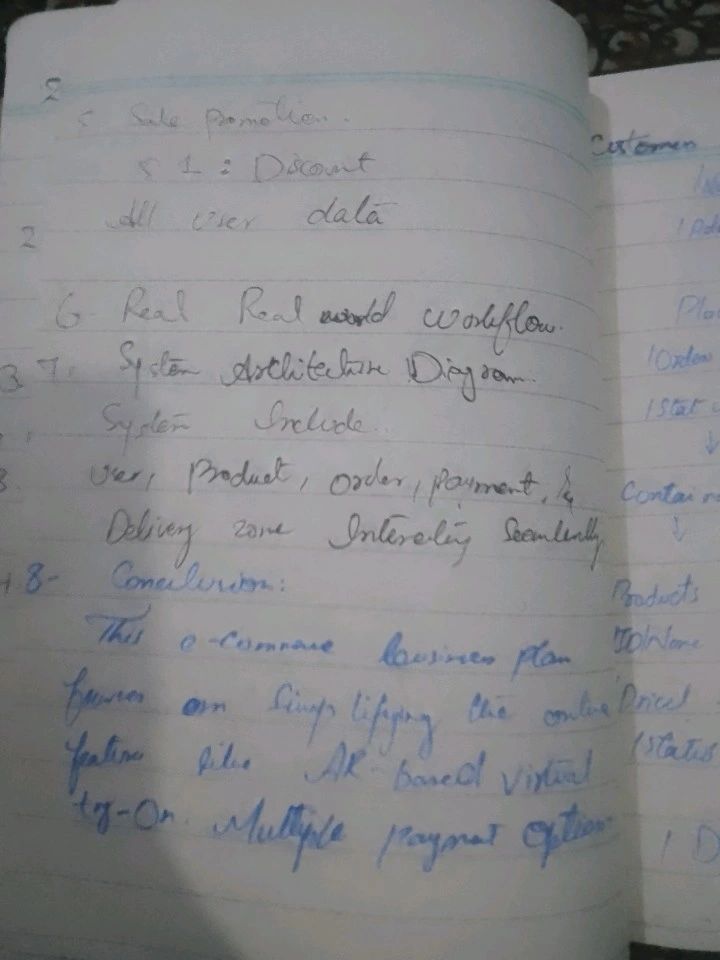 2
5 Sale promotion.
1: Discount
All User data
2
6- Real Real world workflow.
3 7. System Architecture Diagram.
System Include..
User, Product, Order, payment, &
Delivery zone Interacting Seamlessly
8- Conclusion:
This e-commerce business plan
focuses on Simplifying the online
feature like AR-based virtual
try-On. Multiple payment option
Customer
Order
Products
ID/Name
Price
Status